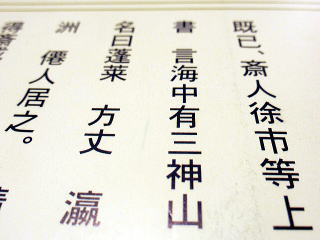 既已、斎人徐市等上
書 言海中有三神山
名曰蓬莱 方丈 瀛
洲 僊人居之。 請
得斎戒